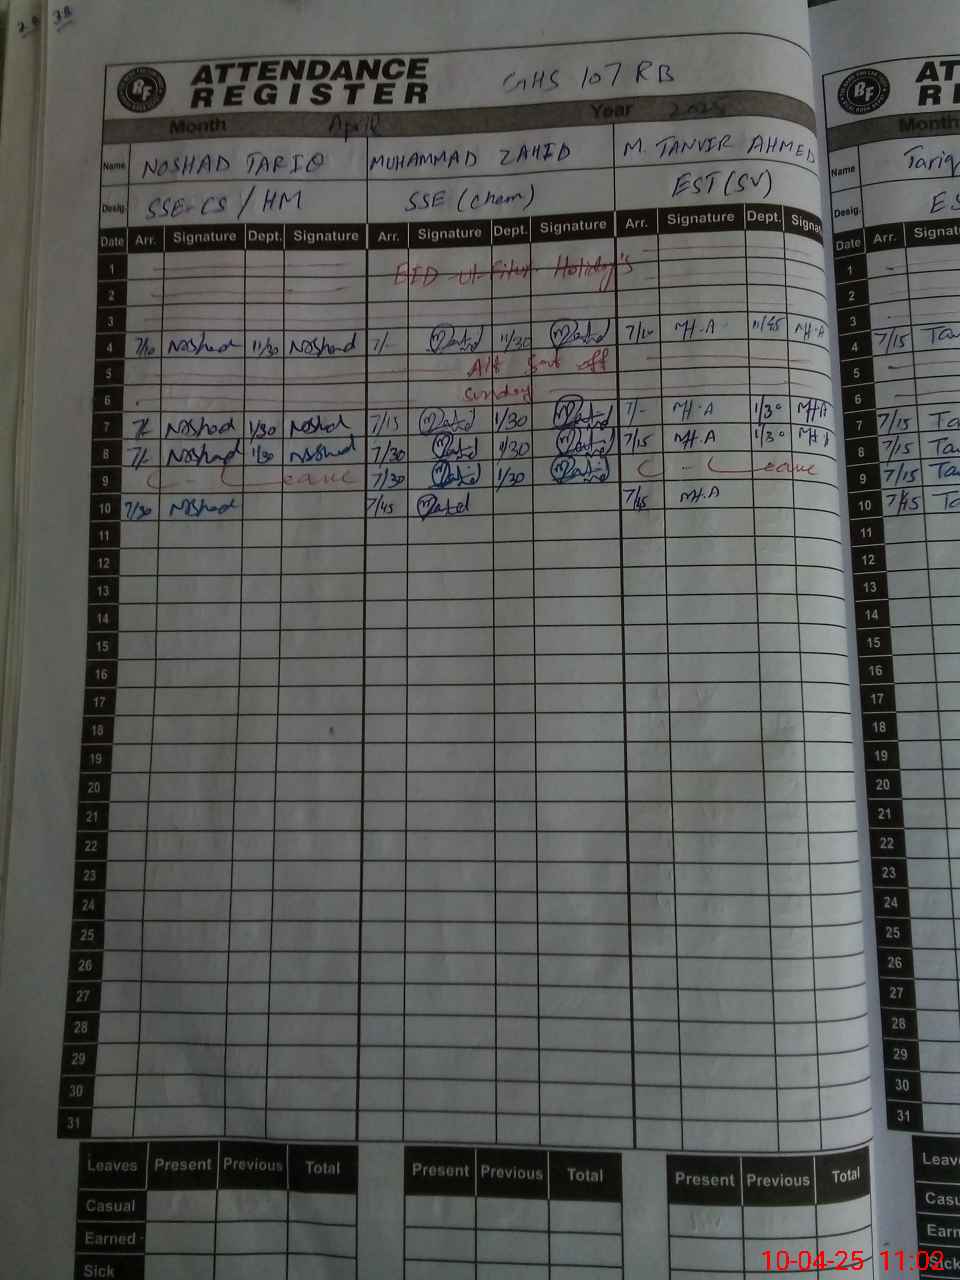 ATTENDANCE REGISTER GHS 107 RB
Month April Year 2025
Name NOSHAD TARIQ MUHAMMAD ZAHID M. TANVIR AHMED
Desig. SSE-CS / HM SSE (Chem) EST (SV)
Date Arr. Signature Dept. Signature Arr. Signature Dept. Signature Arr. Signature Dept. Signat
1 EID-ul-Fiter Holiday's
2
3
4 7/10 Noshad 11/30 Noshad 7/- 11/30 7/10 M.A 11/45 M.A
5 off
6 Sunday
7 7/- Noshad 1/30 Noshad 7/15 1/30 7/- M.A 1/30 M.A
8 7/- Noshad 1/30 Noshad 7/30 1/30 7/15 M.A 1/30 M.A
9 C-Leave 7/30 1/30 C-Leave
10 7/30 Noshad 7/45 7/45 M.A
11
12
13
14
15
16
17
18
19
20
21
22
23
24
25
26
27
28
29
30
31
Leaves Present Previous Total Present Previous Total Present Previous Total
Casual
Earned
Sick
AT
R
Month
Name Tariq
Desig. ES
Date Arr. Signat
1
2
3
4 7/15 Ta
5
6
7 7/15 Ta
8 7/15 Ta
9 7/15 Ta
10 7/45 Ta
11
12
13
14
15
16
17
18
19
20
21
22
23
24
25
26
27
28
29
30
31
Leav
Casu
Earn
Sick
10-04-25 11:02